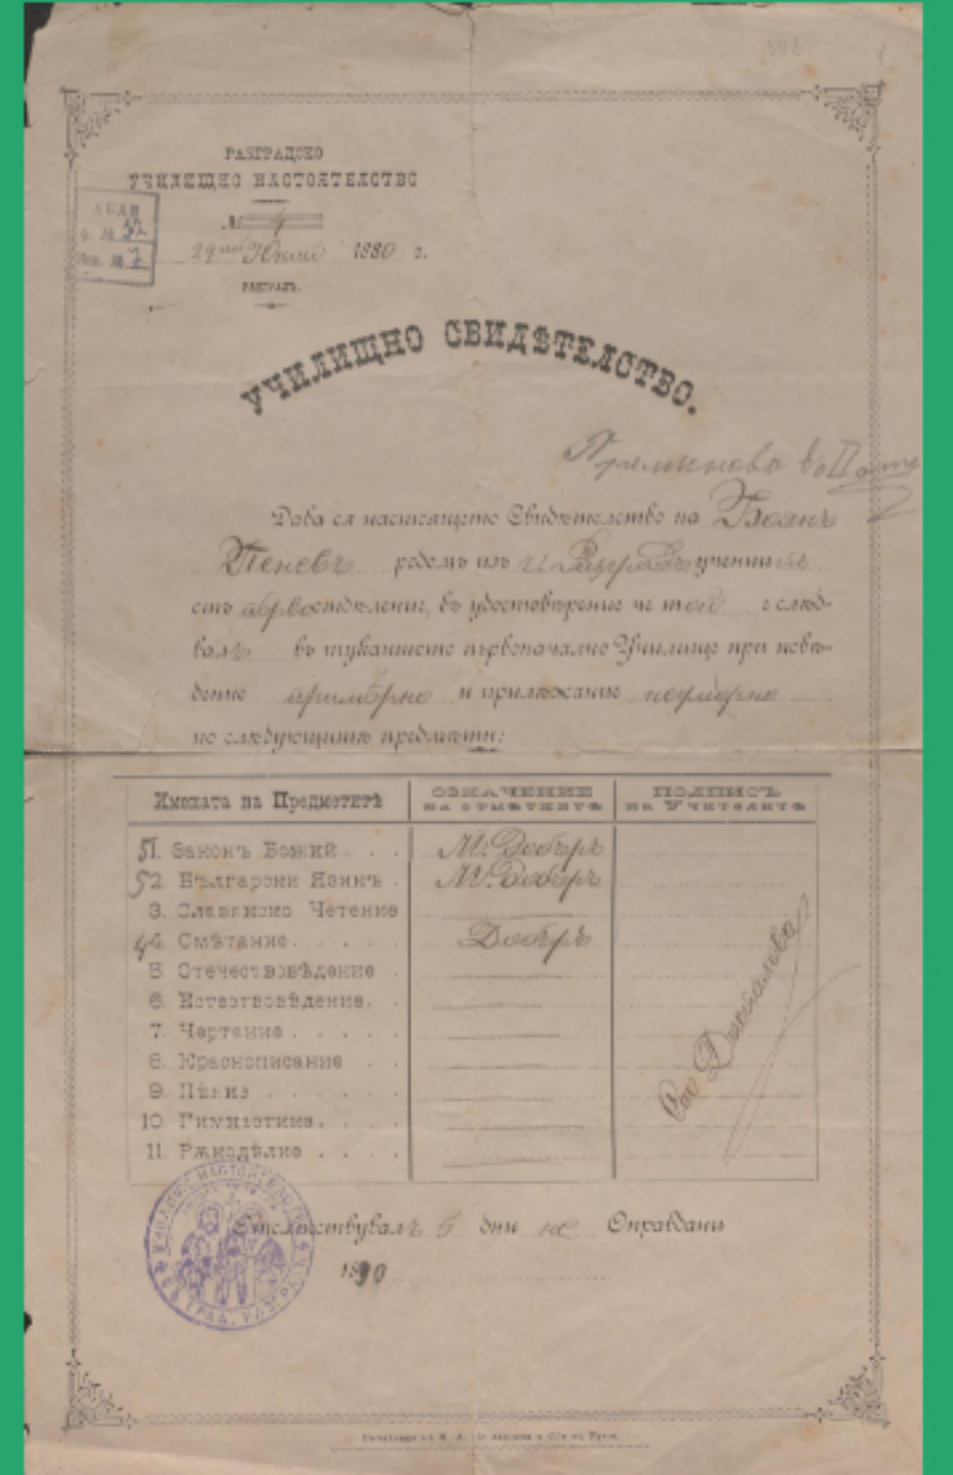 РАЗГРАДСКО
УЧИЛИЩНО НАСТОЯТЕЛСТВО
№ 4
29 Юний 1890 г.
РАЗГРАДЪ.
АБАН
32
7
УЧИЛИЩНО СВИДѢТЕЛСТВО.
Преминова во II
Дава ся настоящето Свидѣтелство на Боянъ
Пеневъ родомъ изъ г. Разградъ ученикъ
отъ първо отдѣление, въ удостовѣрение че той е слѣд-
валъ въ тукашното първоначално Училище при повѣ-
дение примѣрно и прилѣжание
по слѣдующитѣ предмѣти:
Имената на Предметитѣ ОЗНАЧЕНИЕ НА ОТМѢТКИТѢ ПОДПИСЪ НА УЧИТЕЛИТѢ
5 1. Законъ Божий . . . М. Добъръ
5 2. Български Язикъ . М. Добъръ
3. Славянско Четение
4 4. Смѣтание . . . . Добъръ
5. Отечествовѣдение .
6. Естествовѣдение . .
7. Чертание . . . . .
8. Краснописание . .
9. Пѣние . . . . . .
10. Гимнастика . . . .
11. Рѫкодѣлие . . . .
Отсѫтствувалъ 5 дни не Оправдани
1890